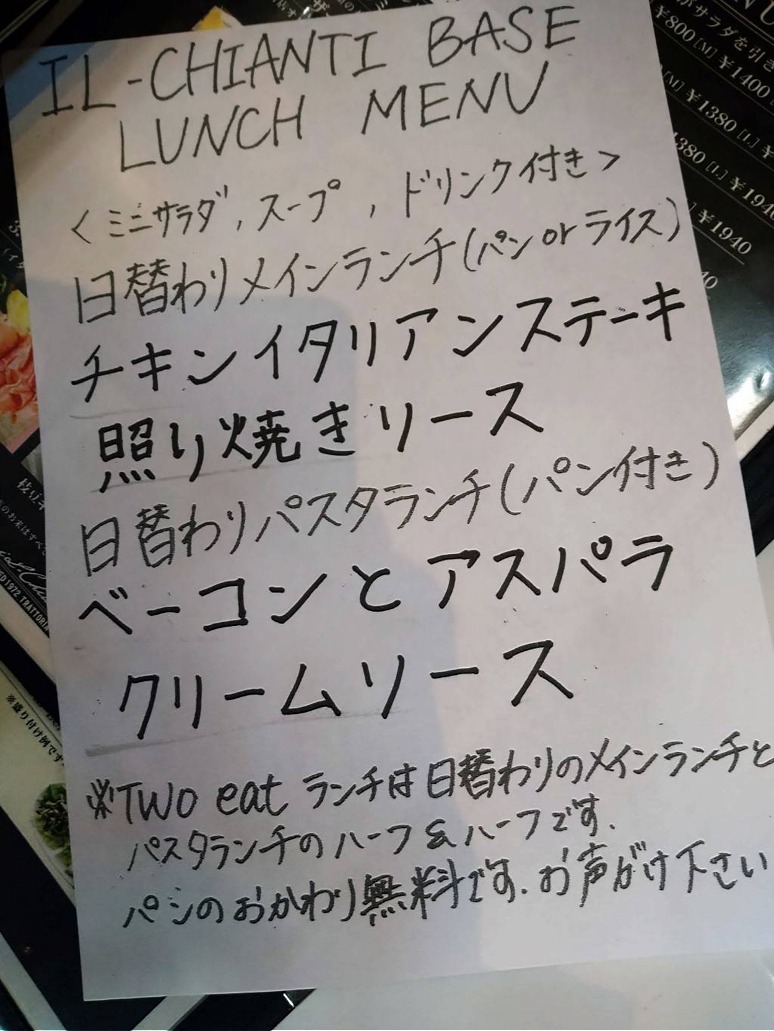 IL-CHIANTI BASE
LUNCH MENU
<ミニサラダ,スープ,ドリンク付き>
日替わりメインランチ(パンorライス)
チキンイタリアンステーキ
照り焼きソース
日替わりパスタランチ(パン付き)
ベーコンとアスパラ
クリームソース
※TWO eat ランチは日替わりのメインランチと
パスタランチのハーフ&ハーフです.
パンのおかわり無料です.お声がけ下さい
がサラダを引き
¥800 [M] ¥1400
[M] ¥1380 [L] ¥
1380 [L] ¥194
¥1940
※盛り付け例です
1972 TRATTORIA